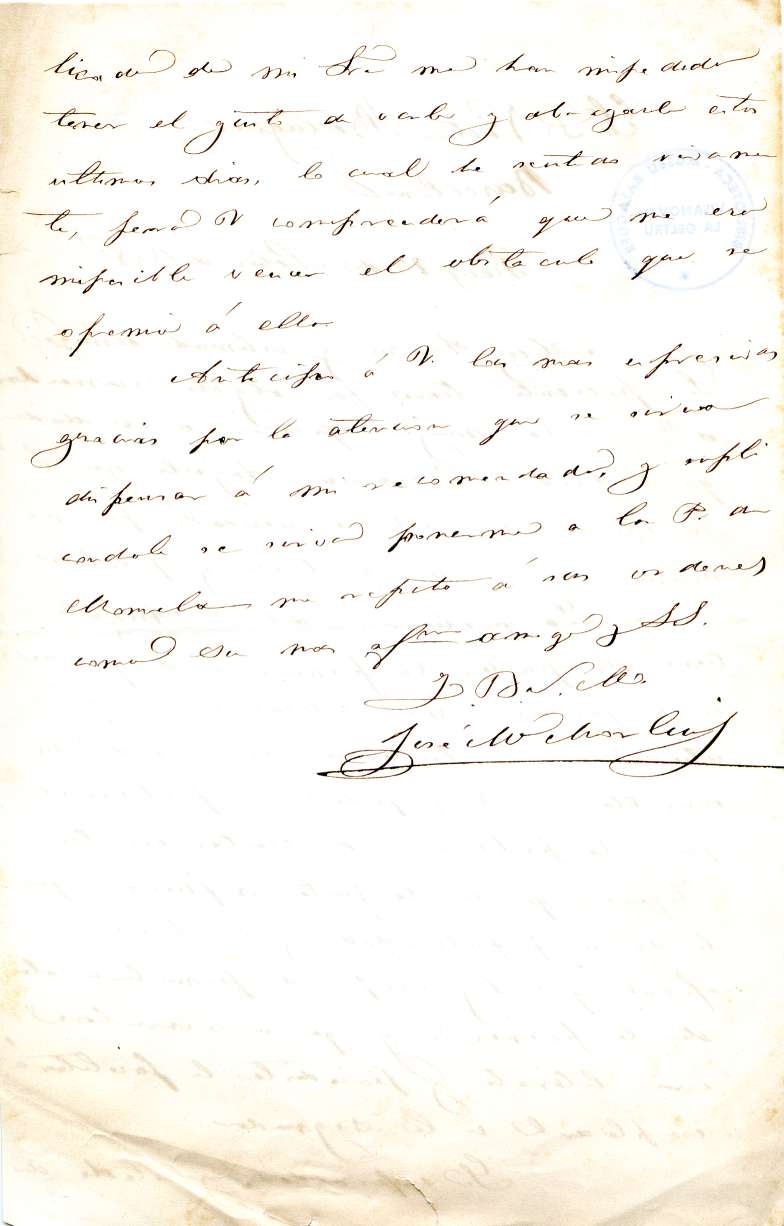 licada de mi Sra me han impedido
tener el gusto de verle y abrazarle estos
ultimos dias, lo cual he sentido vivamen
te, pero V comprenderá que me era
imposible vencer el obstaculo que se
oponia á ello.
Anticipo á V. las mas espresivas
gracias por la atencion que se sirva
dispensar á mi recomendado, y supli
candole se sirva ponerme a los P. de
me repito á sus ordenes
como su mas afmo amigo y SS.
Q. B. S. M.
José M